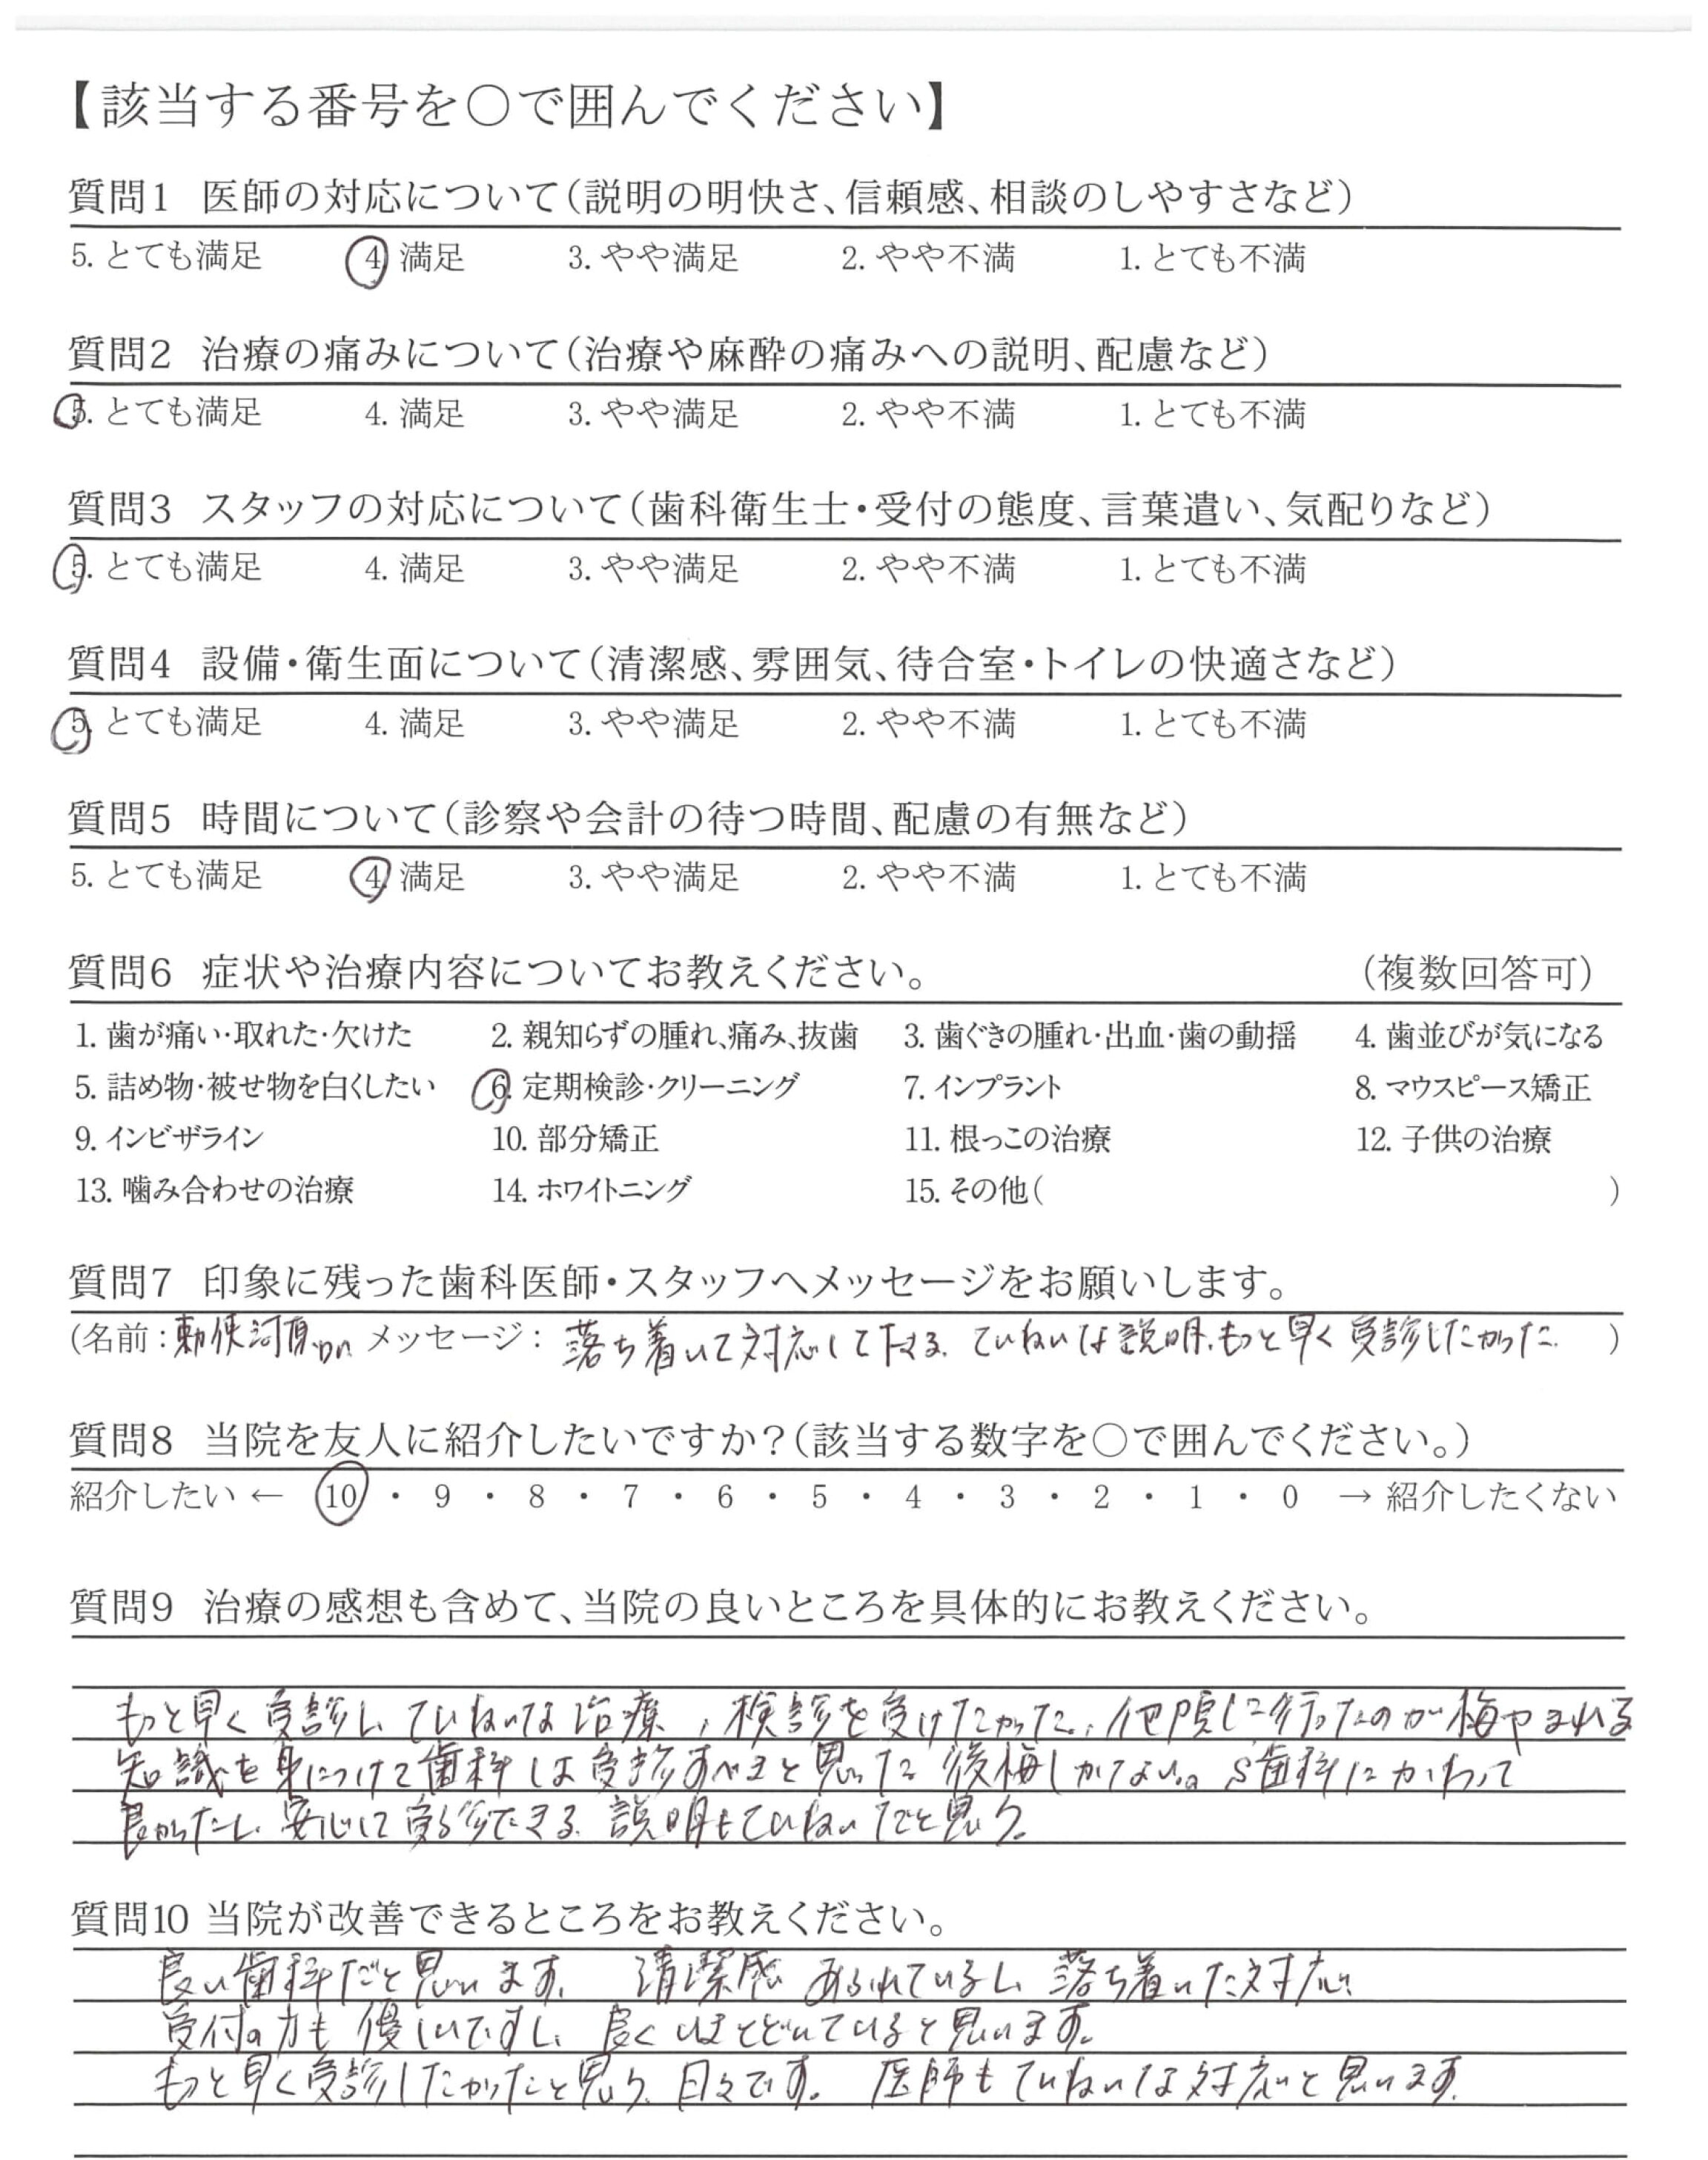 【該当する番号を○で囲んでください】
質問1 医師の対応について(説明の明快さ、信頼感、相談のしやすさなど)
5. とても満足 4. 満足 3. やや満足 2. やや不満 1. とても不満
質問2 治療の痛みについて(治療や麻酔の痛みへの説明、配慮など)
5. とても満足 4. 満足 3. やや満足 2. やや不満 1. とても不満
質問3 スタッフの対応について(歯科衛生士・受付の態度、言葉遣い、気配りなど)
5. とても満足 4. 満足 3. やや満足 2. やや不満 1. とても不満
質問4 設備・衛生面について(清潔感、雰囲気、待合室・トイレの快適さなど)
5. とても満足 4. 満足 3. やや満足 2. やや不満 1. とても不満
質問5 時間について(診察や会計の待つ時間、配慮の有無など)
5. とても満足 4. 満足 3. やや満足 2. やや不満 1. とても不満
質問6 症状や治療内容についてお教えください。 (複数回答可)
1. 歯が痛い・取れた・欠けた 2. 親知らずの腫れ、痛み、抜歯 3. 歯ぐきの腫れ・出血・歯の動揺 4. 歯並びが気になる
5. 詰め物・被せ物を白くしたい 6. 定期検診・クリーニング 7. インプラント 8. マウスピース矯正
9. インビザライン 10. 部分矯正 11. 根っこの治療 12. 子供の治療
13. 噛み合わせの治療 14. ホワイトニング 15. その他( )
質問7 印象に残った歯科医師・スタッフへメッセージをお願いします。
(名前：勅使河原Dr メッセージ： 落ち着いて対応して下さる。ていねいな説明。もっと早く受診したかった。 )
質問8 当院を友人に紹介したいですか？(該当する数字を○で囲んでください。)
紹介したい ← 10 ・ 9 ・ 8 ・ 7 ・ 6 ・ 5 ・ 4 ・ 3 ・ 2 ・ 1 ・ 0 → 紹介したくない
質問9 治療の感想も含めて、当院の良いところを具体的にお教えください。
もっと早く受診し、ていねいな治療、検診を受けたかった。他院に行ったのが悔やまれる
知識を身につけて歯科は受診すべきと思った 後悔しかない。S歯科にかわって
良かったし、安心して受診できる。説明もていねいだと思う。
質問10 当院が改善できるところをお教えください。
良い歯科だと思います。 清潔感あふれているし、落ち着いた対応、
受付の方も優しいですし、良くいきとどいていると思います。
もっと早く受診したかったと思う、日々です。 医師もていねいな対応と思います。